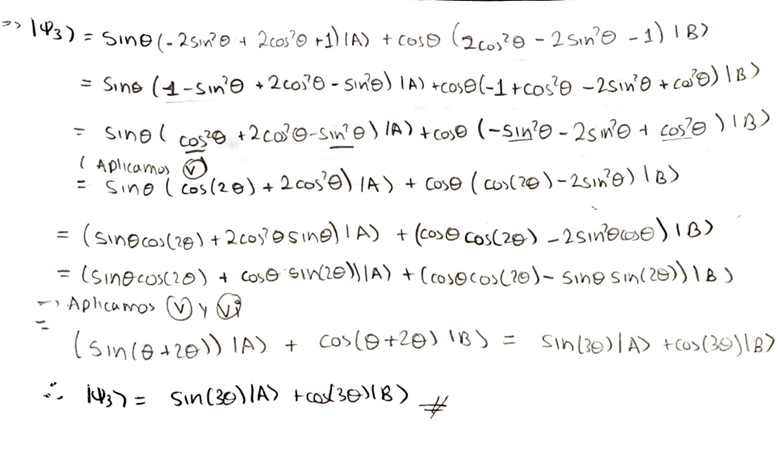 => |ψ₃⟩ = sinθ(-2sin²θ + 2cos²θ + 1)|A⟩ + cosθ (2cos²θ - 2sin²θ - 1) |B⟩
= sinθ (1 - sin²θ + 2cos²θ - sin²θ) |A⟩ + cosθ(-1 + cos²θ - 2sin²θ + cos²θ) |B⟩
= sinθ ( cos²θ + 2cos²θ - sin²θ) |A⟩ + cosθ (-sin²θ - 2sin²θ + cos²θ ) |B⟩
( Aplicamos Ⓥ
= sinθ ( cos(2θ) + 2cos²θ) |A⟩ + cosθ (cos(2θ) - 2sin²θ) |B⟩
= (sinθcos(2θ) + 2cos²θsinθ) |A⟩ + (cosθcos(2θ) - 2sin²θcosθ) |B⟩
= (sinθcos(2θ) + cosθ sin(2θ))|A⟩ + (cosθcos(2θ) - sinθ sin(2θ)) |B⟩
-> Aplicamos Ⓥ y ⓥⓘ
=
(sin(θ+2θ)) |A⟩ + cos(θ+2θ) |B⟩ = sin(3θ)|A⟩ + cos(3θ)|B⟩
∴ |ψ₃⟩ = sin(3θ)|A⟩ + cos(3θ)|B⟩ #